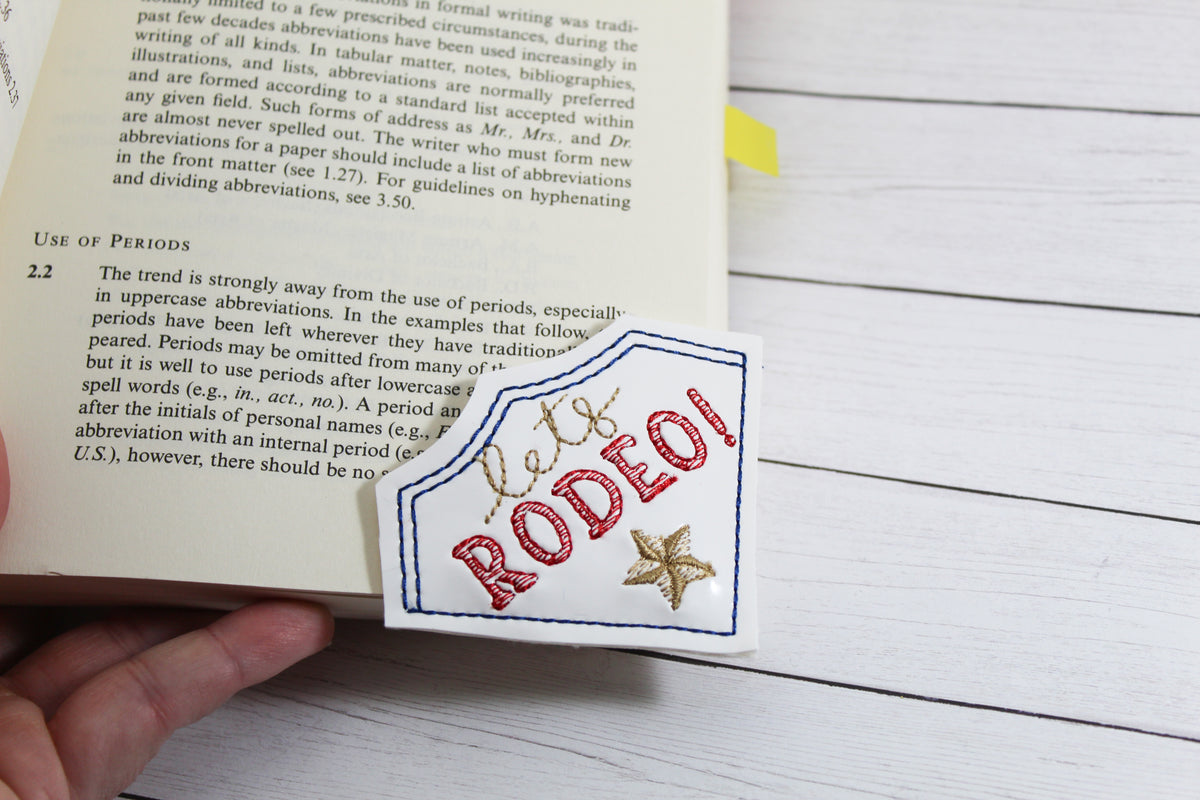 in formal writing was tradi-
limited to a few prescribed circumstances, during the
past few decades abbreviations have been used increasingly in
writing of all kinds. In tabular matter, notes, bibliographies,
illustrations, and lists, abbreviations are normally preferred
and are formed according to a standard list accepted within
any given field. Such forms of address as Mr., Mrs., and Dr.
are almost never spelled out. The writer who must form new
abbreviations for a paper should include a list of abbreviations
in the front matter (see 1.27). For guidelines on hyphenating
and dividing abbreviations, see 3.50.
USE OF PERIODS
2.2 The trend is strongly away from the use of periods, especially
in uppercase abbreviations. In the examples that follow,
periods have been left wherever they have
peared. Periods may be omitted from many of
but it is well to use periods after lowercase
spell words (e.g., in., act., no.). A period
after the initials of personal names (e.g.,
abbreviation with an internal period
U.S.), however, there should be no
lets
RODEO!